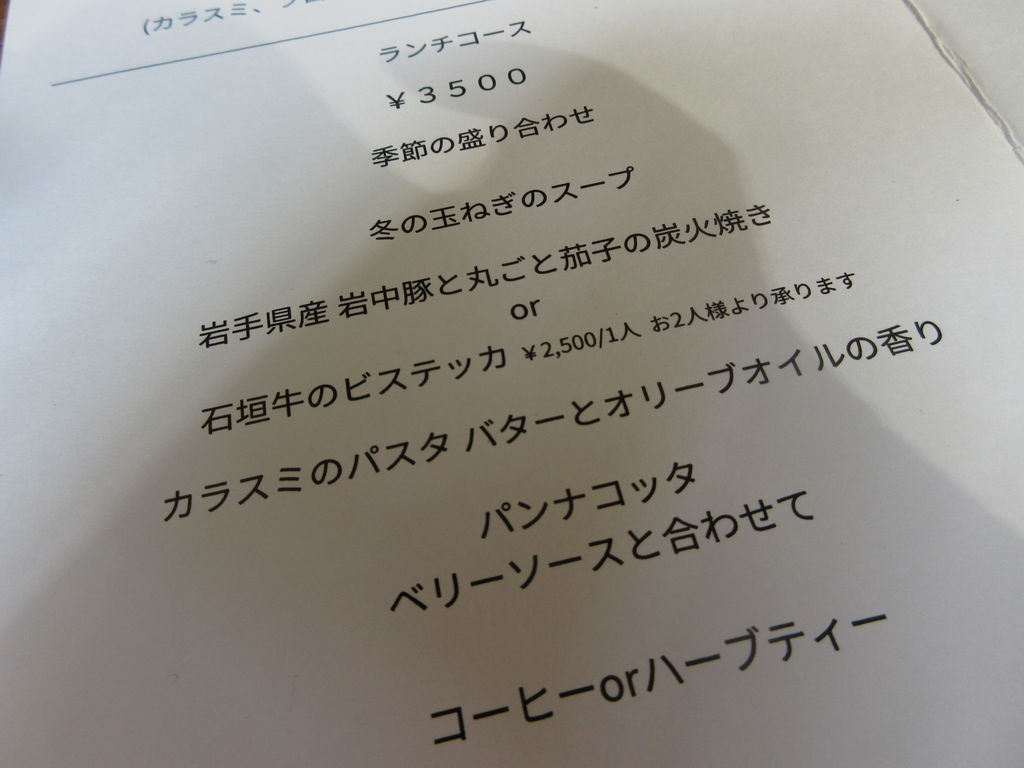 (カラスミ、
ランチコース
￥３５００
季節の盛り合わせ
冬の玉ねぎのスープ
岩手県産 岩中豚と丸ごと茄子の炭火焼き
or
石垣牛のビステッカ ￥2,500/1人 お2人様より承ります
カラスミのパスタ バターとオリーブオイルの香り
パンナコッタ
ベリーソースと合わせて
コーヒーorハーブティー